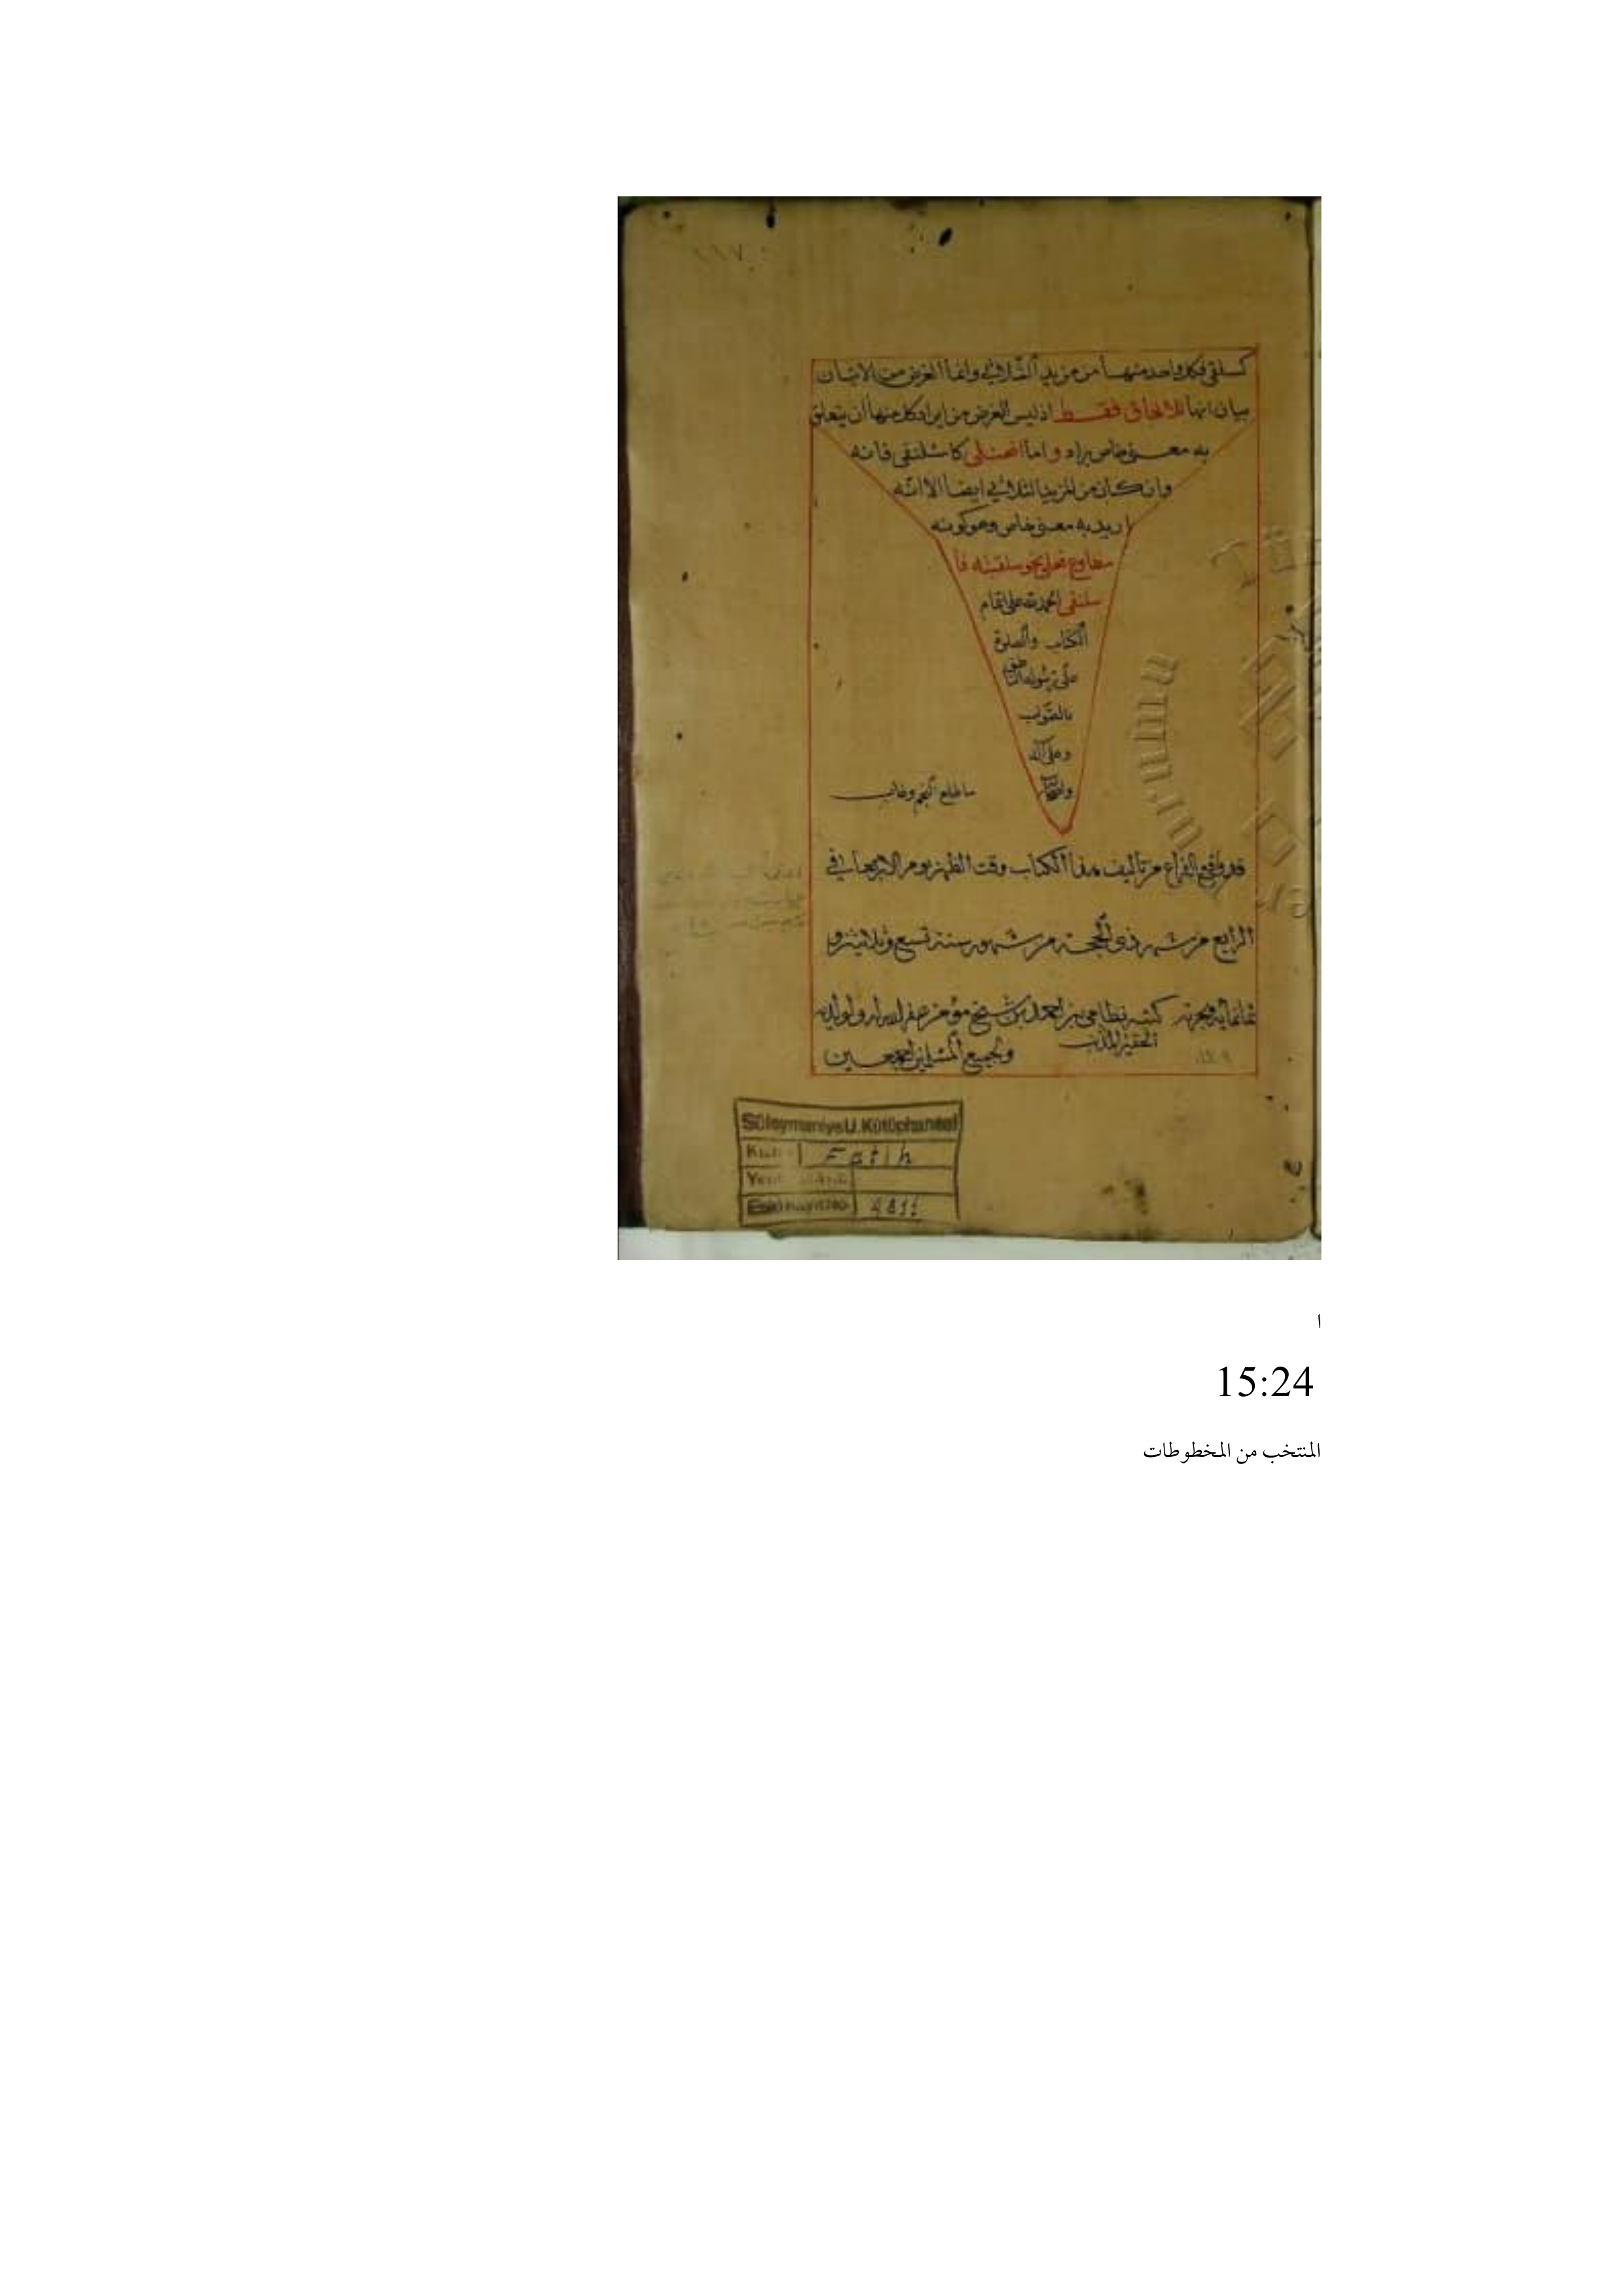 كسلقى فكل واحد منها من مزيد الثلاثي وانما الغرض من الاتيان
بيان انها للالحاق فقط اذ ليس الغرض من ايراد كل منها أن يتعلق
به معنى خاص يراد واما افعنلى كاسلنقى فانه
وان كان من المزيد الثلاثي ايضا الا انه
اريد به معنى خاص وهو كونه
مطاوع فعلى نحو سلقيته فا
سلنقى الحمد لله على اتمام
الكتاب والصلوة
على رسوله الناطق
بالصواب
وعلى آله
ما طلع النجم وغاب
قد وقع الفراغ من تأليف هذا الكتاب وقت الظهر يوم الاربعا في
الرابع من شهر ذي الحجة من شهور سنة تسع وثلاثين و
ثمانمائة هجرية كتبه نظامي بن احمد بن شيخ
الحقير المذنب
ولجميع المسلمين اجمعين
Süleymaniye U. Kütüphanesi
Fatih
Eski Kayıt No.
ا
15:24
المنتخب من المخطوطات